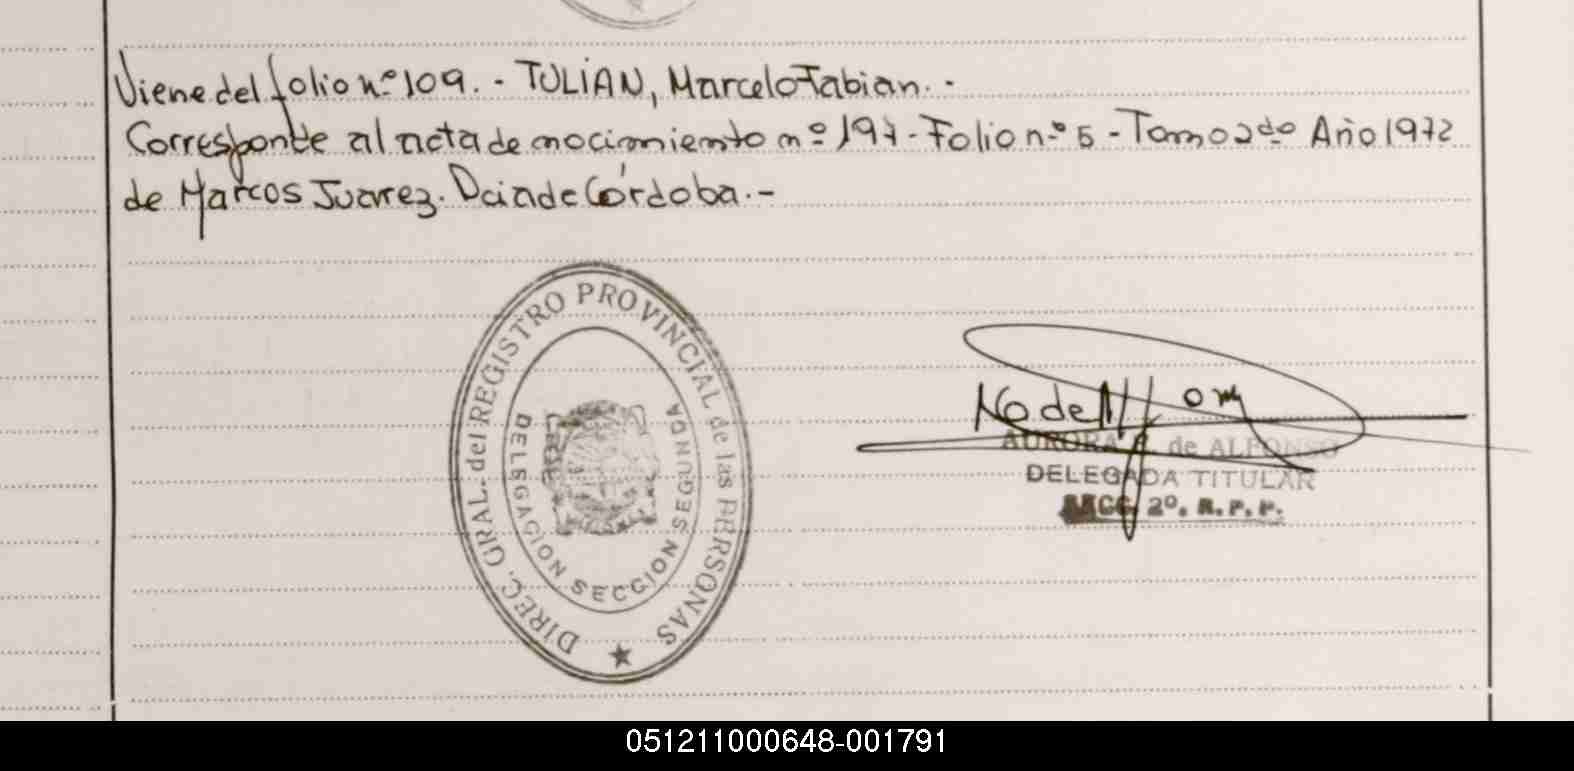 Viene del folio nº 109. - TULIAN, Marcelo Fabian. -
Corresponde al acta de nacimiento nº 197 - Folio nº 5 - Tomo 2do Año 1972
de Marcos Juarez. Pcia de Córdoba. -
DIREC. GRAL. del REGISTRO PROVINCIAL de las PERSONAS
DELEGACION SECCION SEGUNDA
AURORA de ALFONSO
DELEGADA TITULAR
SECC. 2º. R. P. P.
051211000648-001791